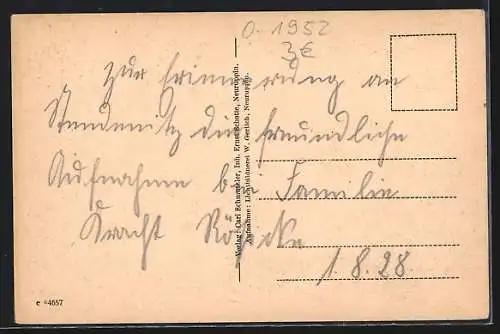 O. 1952
3€
Zur Erinnerung an
Stendenitz die freundliche
Aufnahme bei Familie
Kracht
1.8.28
Verlag: Carl Schumacher, Inh. Ernst Schultz, Neuruppin.
Aufnahme: Lichtbildnerei W. Gerlich, Neuruppin.
e *4657